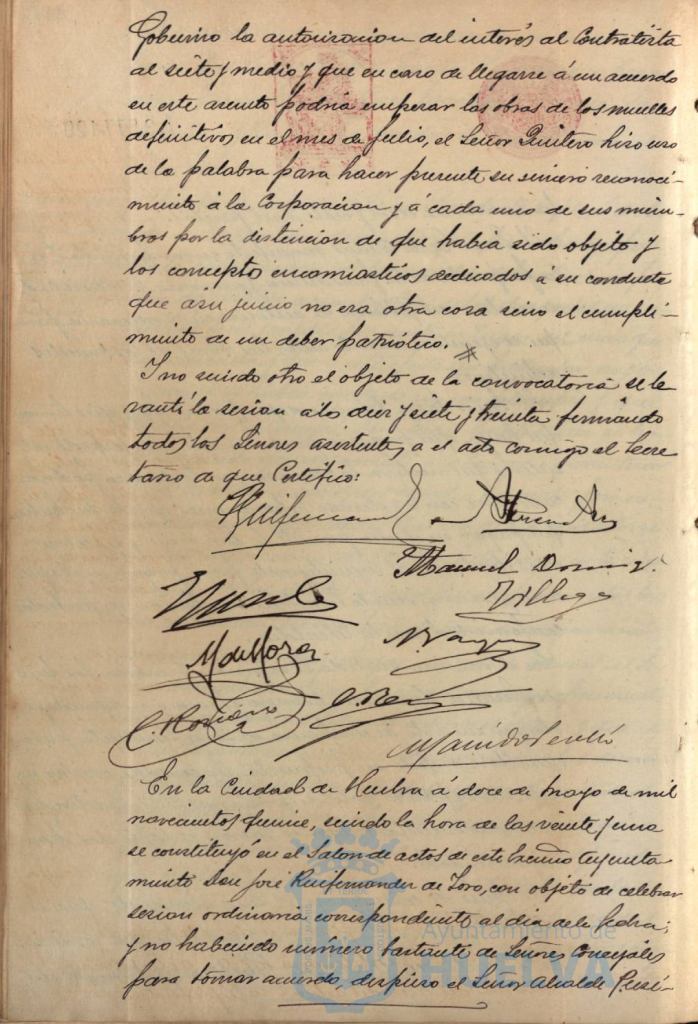 Gobierno la autorizacion del interés al Contratista
al siete y medio y que en caso de llegarse á un acuerdo
en este asunto podria empezar las obras de los muelles
definitivos en el mes de Julio, el Señor Quintero hizo uso
de la palabra para hacer presente su sincero reconoci-
miento á la Corporacion y á cada uno de sus miem-
bros por la distincion de que habia sido objeto y
los conceptos encomiasticos dedicados á su conducta
que á su juicio no era otra cosa sino el cumpli-
miento de un deber patriótico.
Y no siendo otro el objeto de la convocatoria se le
vantó la sesion a las diez y siete y treinta firmando
todos los Señores asistentes a el acto conmigo el Secre
tario de que Certifico:
Manuel Domin
Villega
M de Mora
N. Vazqu
En la Ciudad de Huelva á doce de Mayo de mil
novecientos quince, siendo la hora de las veinte y una
se constituyó en el Salon de actos de este Excmo Ayunta
miento Don José Ruifernandez de Toro, con objeto de celebrar
sesion ordinaria correspondiente al dia de la fecha;
y no habiendo número bastante de Señores Concejales
para tomar acuerdo, dispuso el Señor Alcalde Presi-
Ayuntamiento de
HUELVA